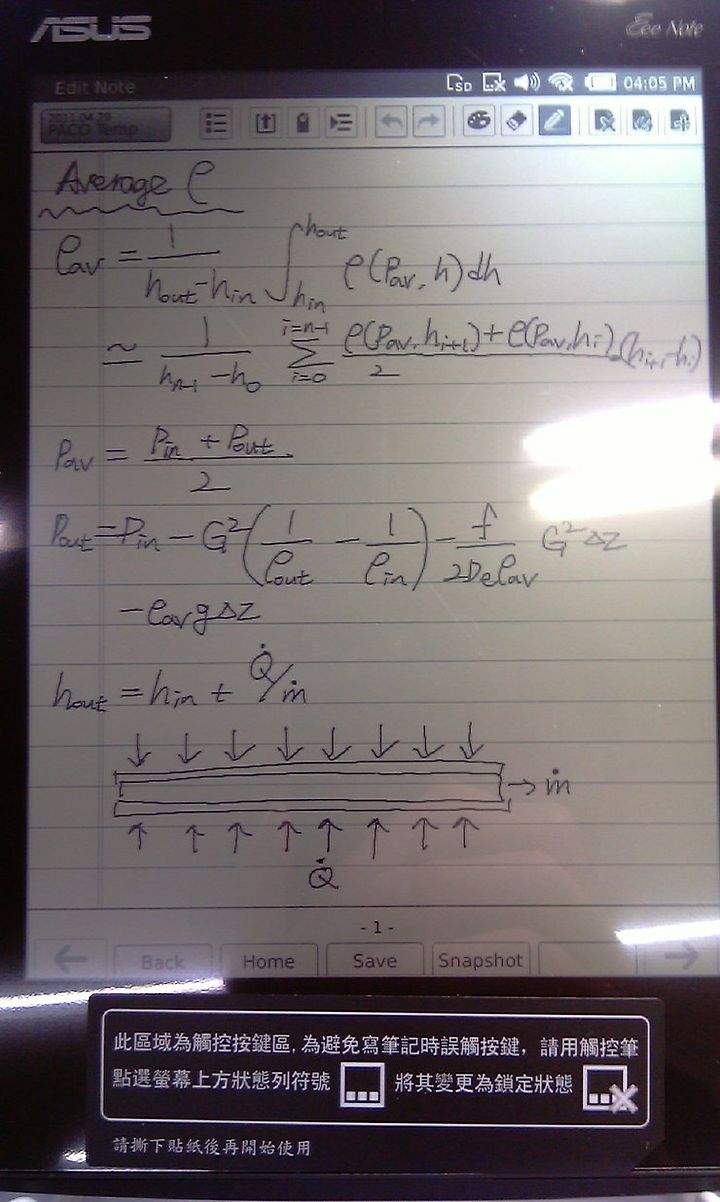 ASUS
Eee Note
Edit Note
SD
04:05 PM
2011.04.29
PACO Temp
Average ρ
ρav = 1/(hout - hin) ∫_hin^hout ρ(Pav, h) dh
≃ 1/(hn-1 - h0) Σ_i=0^i=n-1 (ρ(Pav, hi+1) + ρ(Pav, hi))/2 · (hi+1 - hi)
Pav = (Pin + Pout)/2
Pout = Pin - G²(1/ρout - 1/ρin) - f/(2Deρav) G²ΔZ
- ρav gΔZ
hout = hin + Q̇/ṁ
→ ṁ
Q̇
- 1 -
Back
Home
Save
Snapshot
此區域為觸控按鍵區,為避免寫筆記時誤觸按鍵,請用觸控筆
點選螢幕上方狀態列符號 將其變更為鎖定狀態
請撕下貼紙後再開始使用